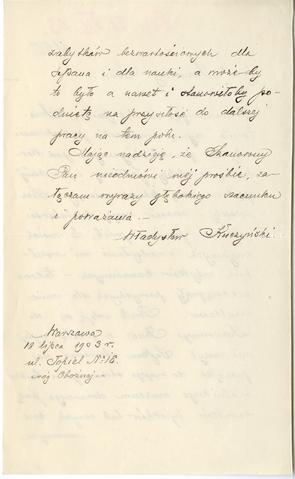 zabytków bezwartościowych dla
Pana i dla nauki, a może by
to było a nawet i stanowiłoby po-
dnietę na przyszłość do dalszej
pracy na tem polu.
Mając nadzieję, że Szanowny
Pan nieodmówi mój prośbie, za-
łączam wyrazy głębokiego szacunku
i poważania.—
Władysław Kuczyński.
Warszawa
18 lipca 1903 r.
ul. Topiel № 18.
róg Oboźnej